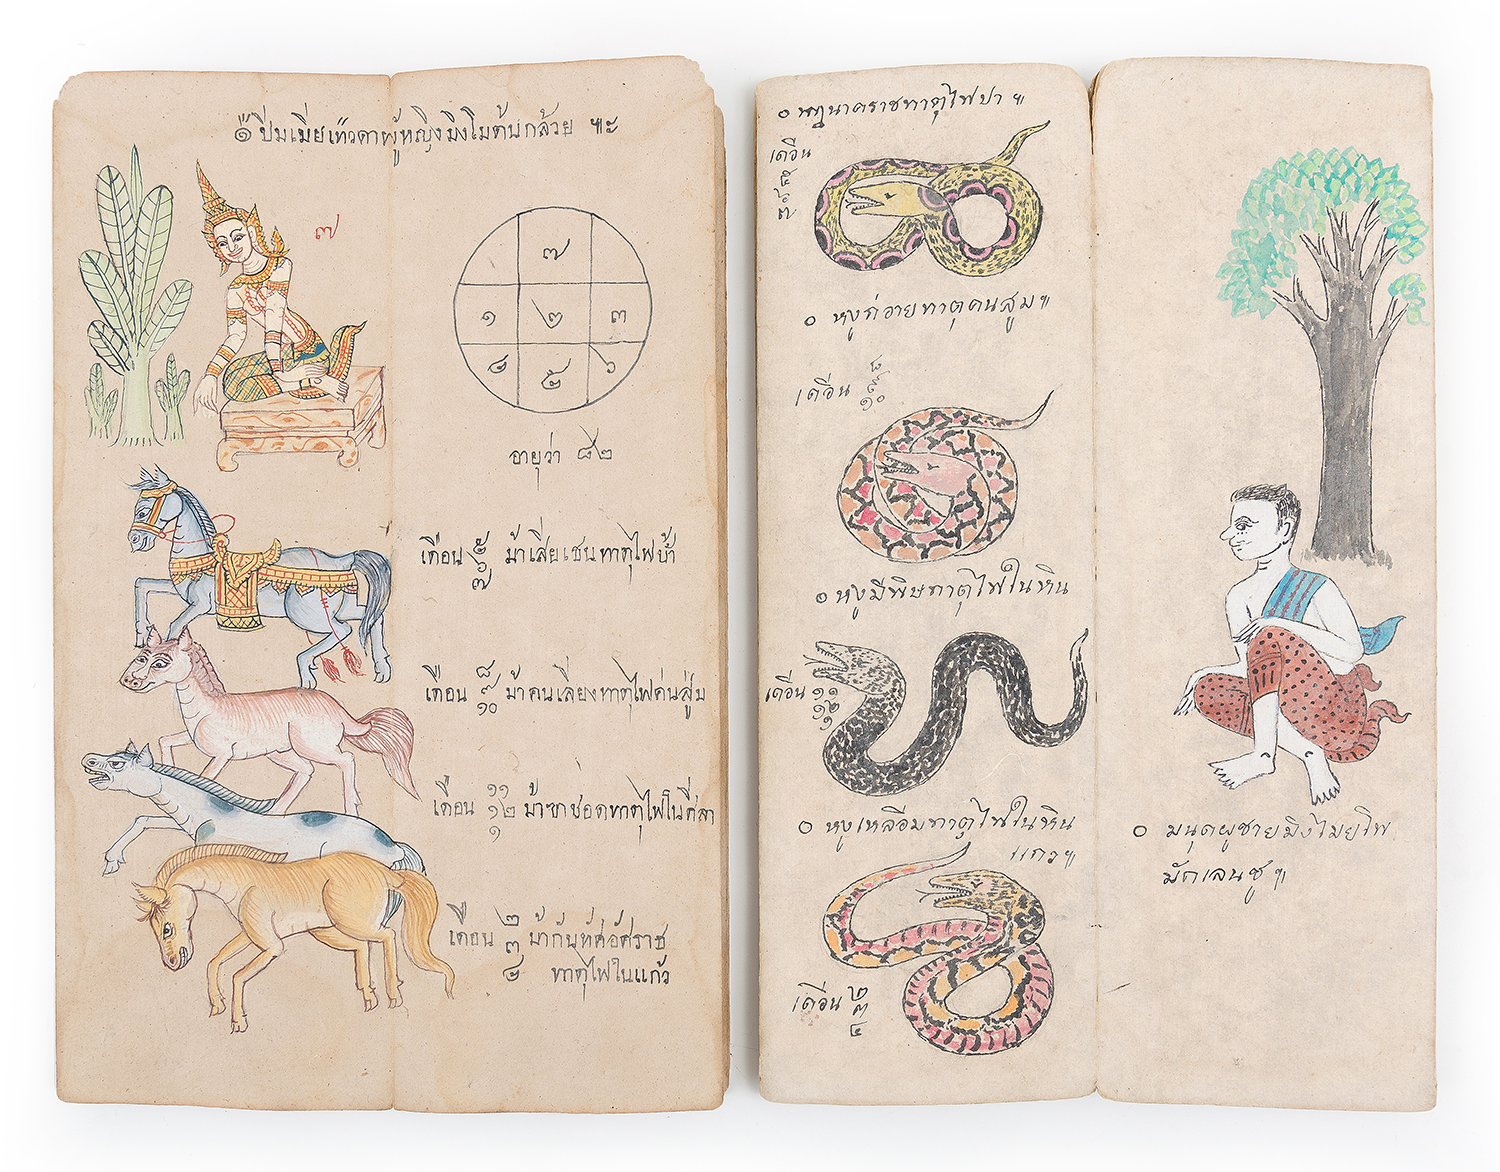 ๑ ปีมเมียเทวดาผู้หญิงมิ่งไม้ต้นกล้วย ๚ะ
๓
๗
๑ ๒ ๓
๘ ๕ ๖
อายุว่า ๘๒
เดือน ๕ ๖ ๗ ม้าเสี่ยเซนทาตุไฟบ้ำ
เดือน ๘ ๙ ๑๐ ม้าคนเลี่ยงทาตุไฟค่นสู่ม
เดือน ๑๑ ๑๒ ๑ ม้าซาซอดทาตุไฟในสี่ลา
เดือน ๒ ๓ ๔ ม้ากันทัศอัศราช
ทาตุไฟในแก้ว
๐ พญนาคราชทาตุไฟปา ๚
เดือน
๕
๖
๗
๐ หงูก่อายทาตุคนสูม ๚
เดือน ๘ ๙ ๑๐
๐ หงูมีพิษทาตุไฟในหิน
เดือน ๑๑ ๑๒ ๑
๐ หงูเหลือมทาตูไฟในหิน
แกว ๚
เดือน ๒ ๓ ๔
๐ มนุดผูชายมิงไมยโพ
มักเลนชู ๚